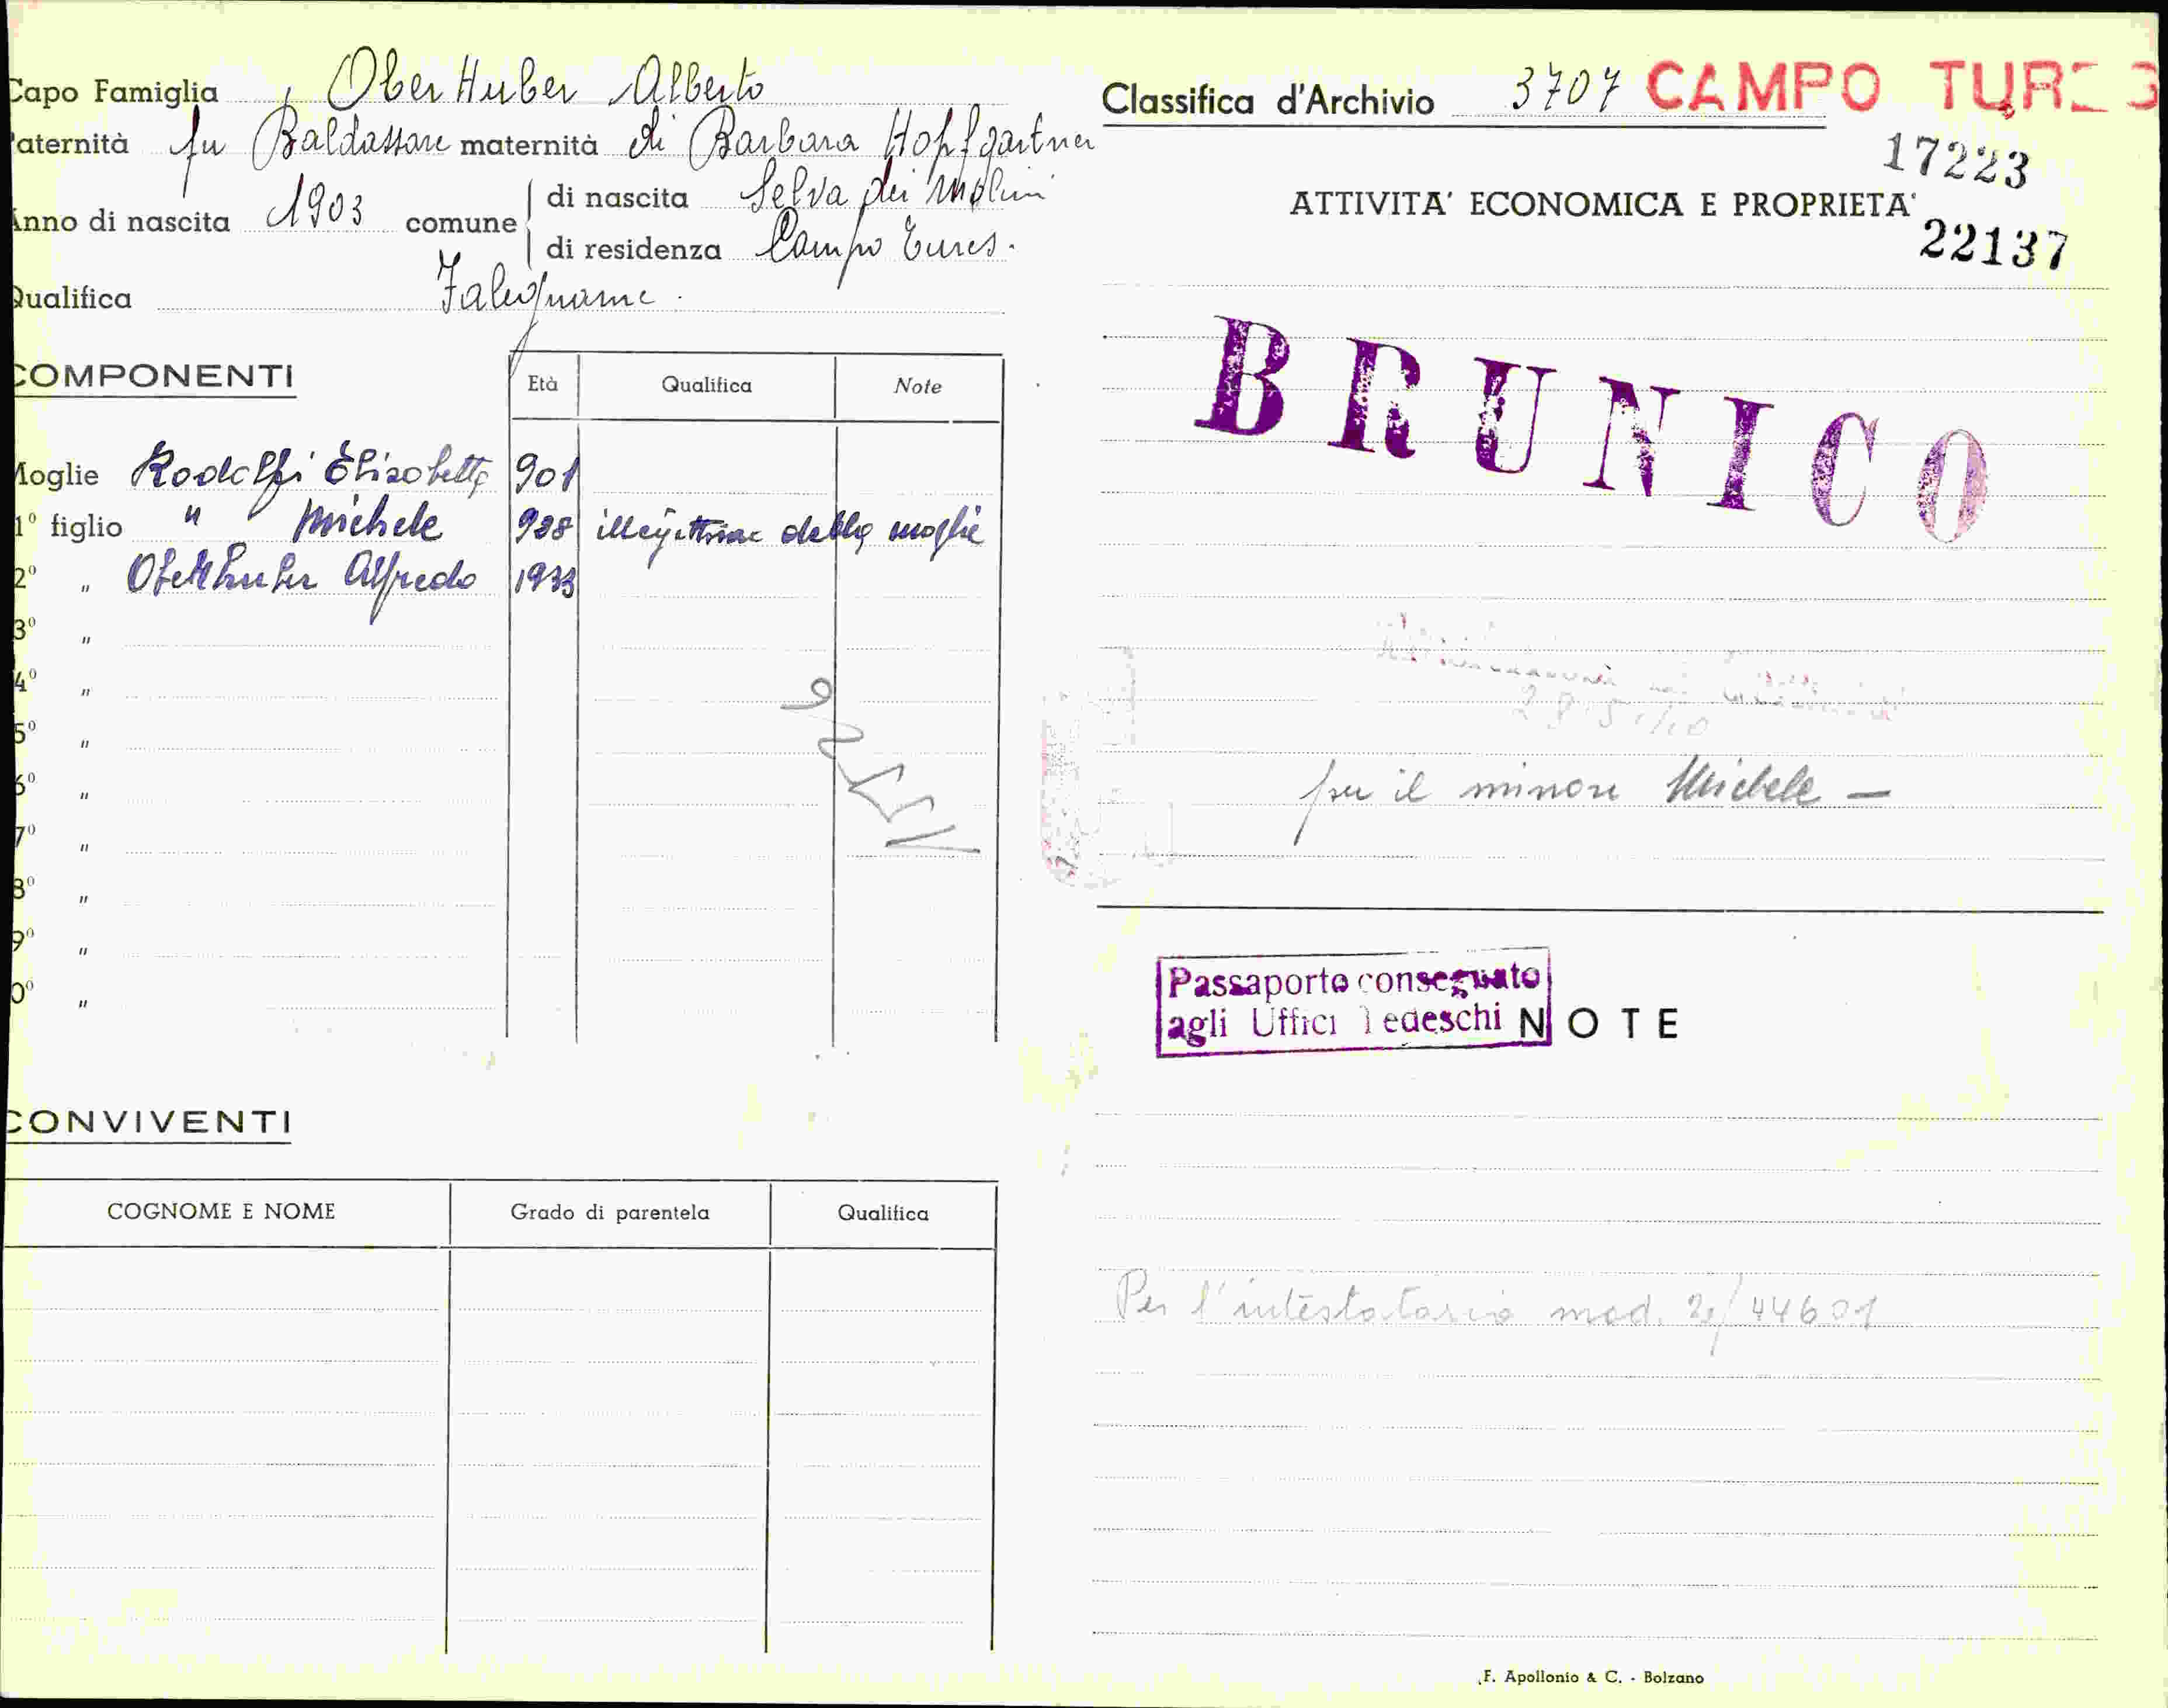 Capo Famiglia OberHuber Alberto
aternità fu Baldassare maternità di Barbara Hopfgartner
Anno di nascita 1903 comune di nascita Selva dei Molini
di residenza Campo Tures.
Qualifica Falegname.
COMPONENTI
Età Qualifica Note
Moglie Rodolfi Elisabetta 901
1° figlio " Michele 928 illegittimo della moglie
2° " Oberhuber Alfredo 1933
3° "
4° "
5° "
6° "
7° "
8° "
9° "
0° "
CONVIVENTI
COGNOME E NOME Grado di parentela Qualifica
Classifica d'Archivio 3707 CAMPO TURES
17223
ATTIVITA' ECONOMICA E PROPRIETA'
22137
BRUNICO
per il minore Michele —
Passaporto consegnato
agli Uffici Tedeschi
NOTE
Per l'intestatario mod. 2/44601
F. Apollonio & C. - Bolzano